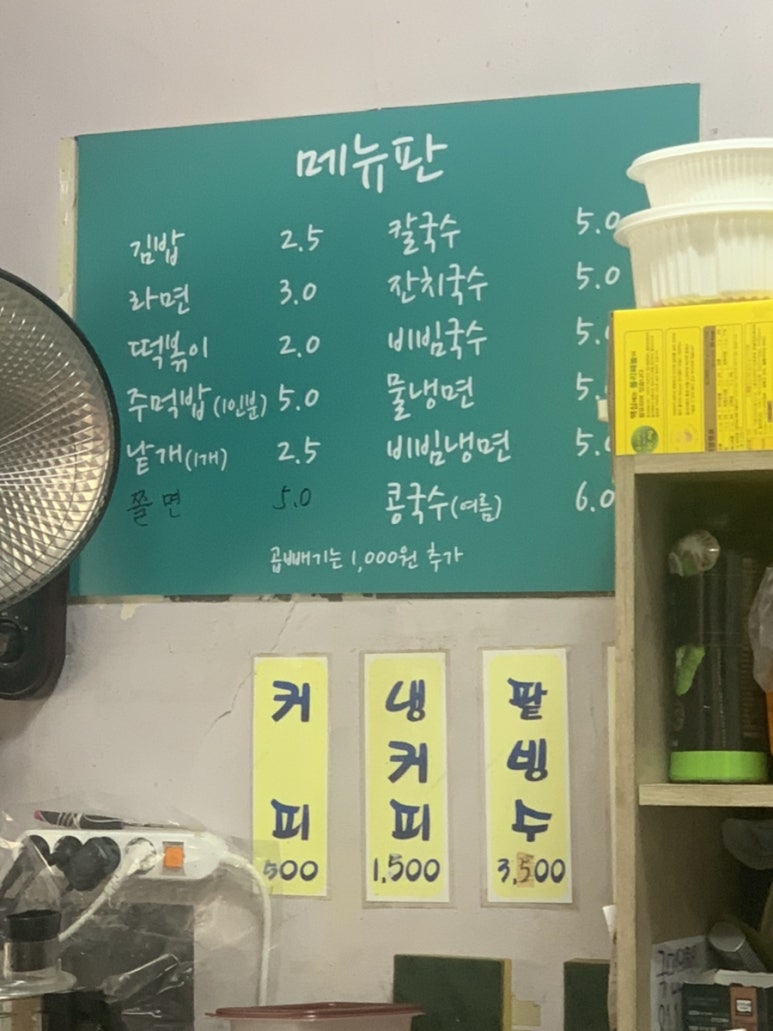 메뉴판
김밥 2.5
라면 3.0
떡볶이 2.0
주먹밥(1인분) 5.0
낱개(1개) 2.5
쫄면 5.0
칼국수 5.0
잔치국수 5.0
비빔국수 5.
물냉면 5.
비빔냉면 5.0
콩국수(여름) 6.0
곱빼기는 1,000원 추가
커피
500
냉커피
1,500
팥빙수
3,500